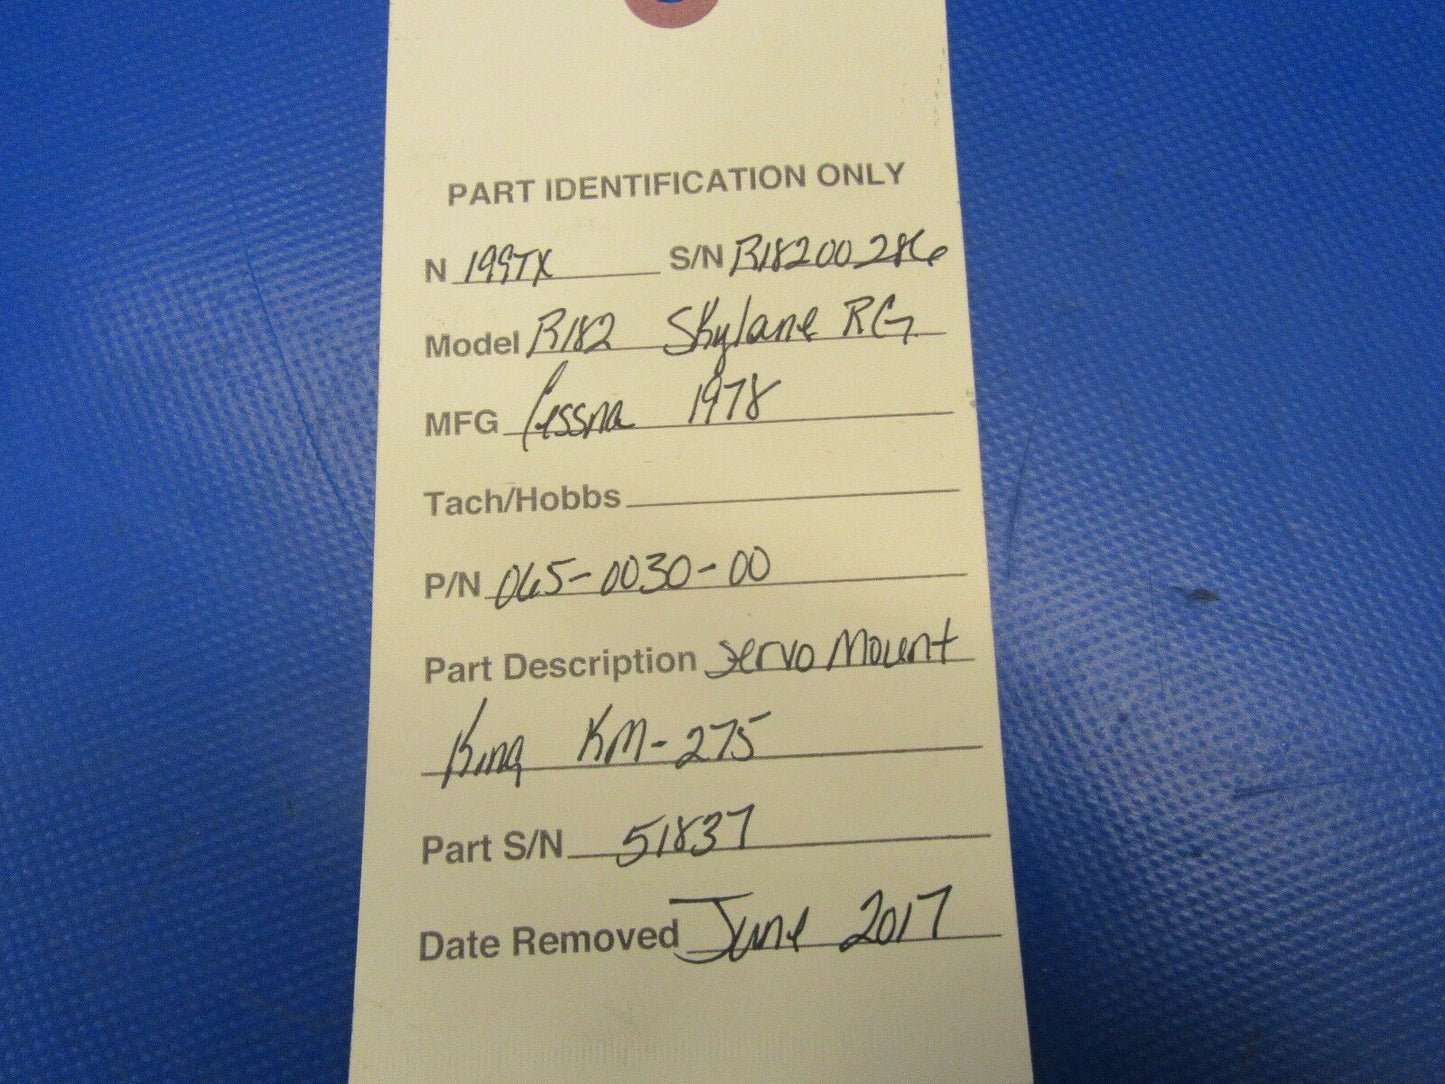 PART IDENTIFICATION ONLY
N 199TX S/N R18200286
Model R182 Skylane RG
MFG Cessna 1978
Tach/Hobbs
P/N 065-0030-00
Part Description Servo Mount
King KM-275
Part S/N 51837
Date Removed June 2017